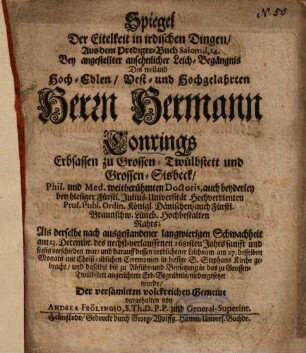 N. 50
Spiegel
Der Eitelkeit in irdischen Dingen/
Aus dem Prediger-Buch Salom. I, 14.
Bey angestellter ansehnlicher Leich-Begängnis
Des weiland
Hoch-Edlen/ Vest- und Hochgelahrten
Herrn Hermann
Conrings
Erbsassen zu Grossen-Twülbstett und
Grossen-Sisbeck/
Phil. und Med. weitberühmten Doctoris, auch beyderley
bey hiesiger Fürstl. Julius-Universität Hochverdienten
Prof. Publ. Ordin. Königl. Dänischen/ auch Fürstl.
Braunschw. Lüneb. Hochbestalten
Rahts/
Als derselbe nach ausgestandener langwierigen Schwachheit
am 13. Decemb. des nechst-verlauffenen 1681sten Jahrs sanfft und
selig verschieden war/ und darauff dessen verblichener Leichnam am 27. desselben
Monats mit Christ-üblichen Ceremonien in hiesige S. Stephani Kirche ge-
bracht/ und daselbst biß zu Abführ- und Beysetzung in das zu Grossen-
Twülbstett angerichtete Erb-Begräbnis niedergesetzet
wurde/
Der versamleten volckreichen Gemeine
vorgehalten von
ANDREA FRÖLINGIO, S. Th. D. P. P. und General-Superint.
Helmstedt/ Gedruckt durch Georg-Wolffg. Hamm/ Univers. Buchdr.